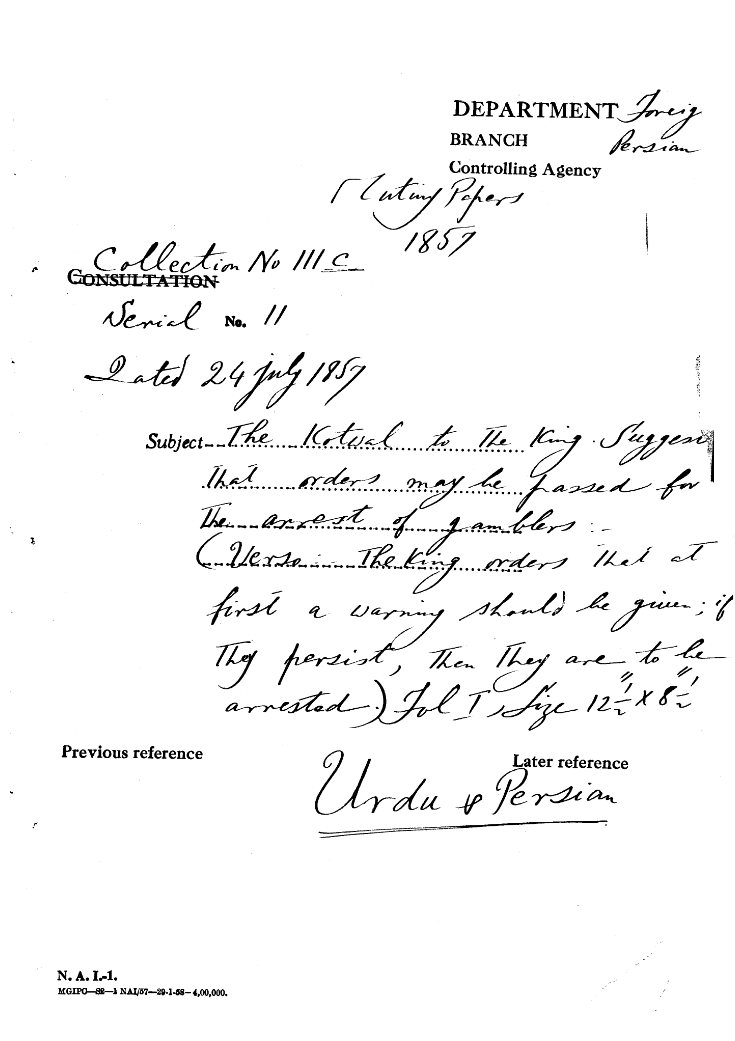 DEPARTMENT Foreig
BRANCH Persian
Controlling Agency
Mutiny Papers
1857
Collection No III C
CONSULTATION
Serial No. 11
Dated 24 July 1857
Subject The Kotwal to the King. Sugges
that orders may be passed for
the arrest of gamblers :-
(Verso :- The King orders that at
first a warning should be given; if
they persist, then they are to be
arrested.) Fol I, Size 12½" x 8½"
Previous reference
Later reference
Urdu & Persian
N. A. I.-1.
MGIPC—S2—1 NAI/57—29-1-58—4,00,000.